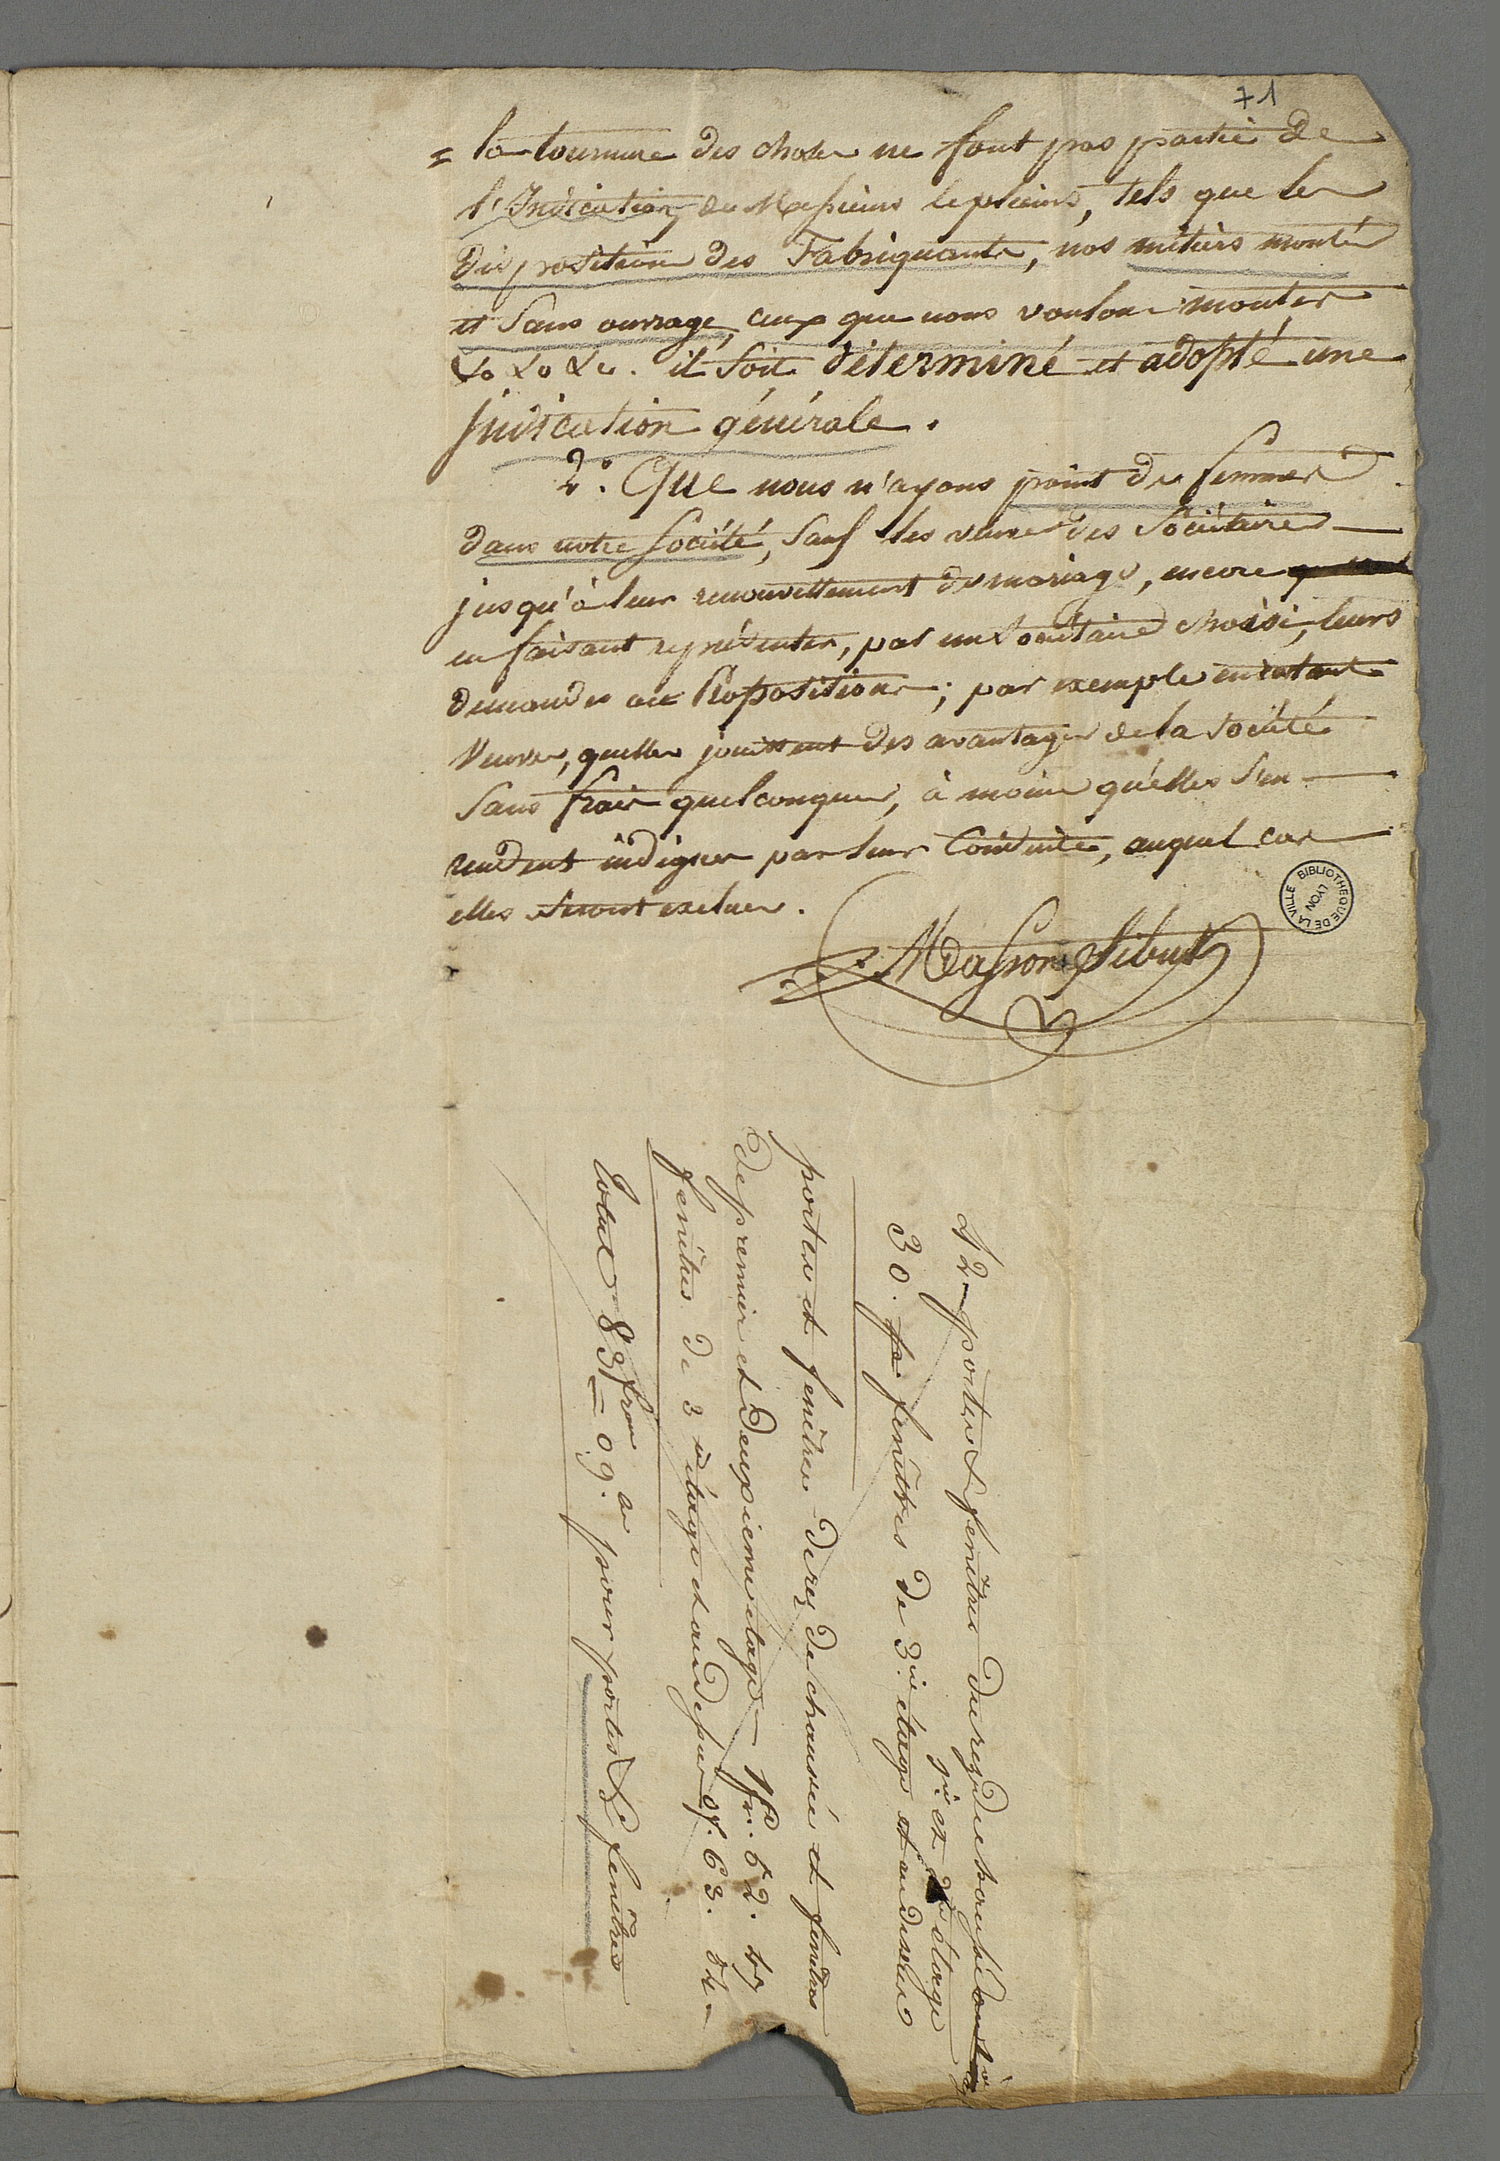 71
= la tournure des choses ne font pas partie de
l'Indication, de Messieurs les pleins, tels que les
dispositions des Fabriquants, nos métiers montés
et sans ouvrage, ceux que nous voulons monter
&a &a &a. il soit déterminé et adopté une
Indication générale.
2.° Que nous n'ayons point de femmes
dans notre Société, sauf les veuves des Sociétaires
jusqu'à leur renouvellement de mariage, encore
en faisant représenter, par un Sociétaire choisi, leurs
demandes ou Propositions; par exemple en étant
Veuves, quelles jouissent des avantages de la Société
sans frais quelconques, à moins qu'elles s'en
rendent indignes par leur Conduite, auquel cas
elles seront exclues.
Masson Sibut
BIBLIOTHEQUE DE LA VILLE
LYON
42 - portes & fenêtres du rez de chaussée
1er et 2me étage
30. fenêtres de 3me étage et au dessus
portes et fenêtres de rez de chaussée et fenêtres
de premier et deuxieme etage - 1fr. 52.
fenêtres de 3me étage et au dessus of. 63.
Total 83 fran = 09. ce pour portes & fenêtres